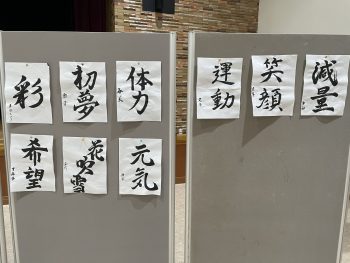 彩
初夢
体力
運動
笑顔
減量
希望
花吹雪
元気